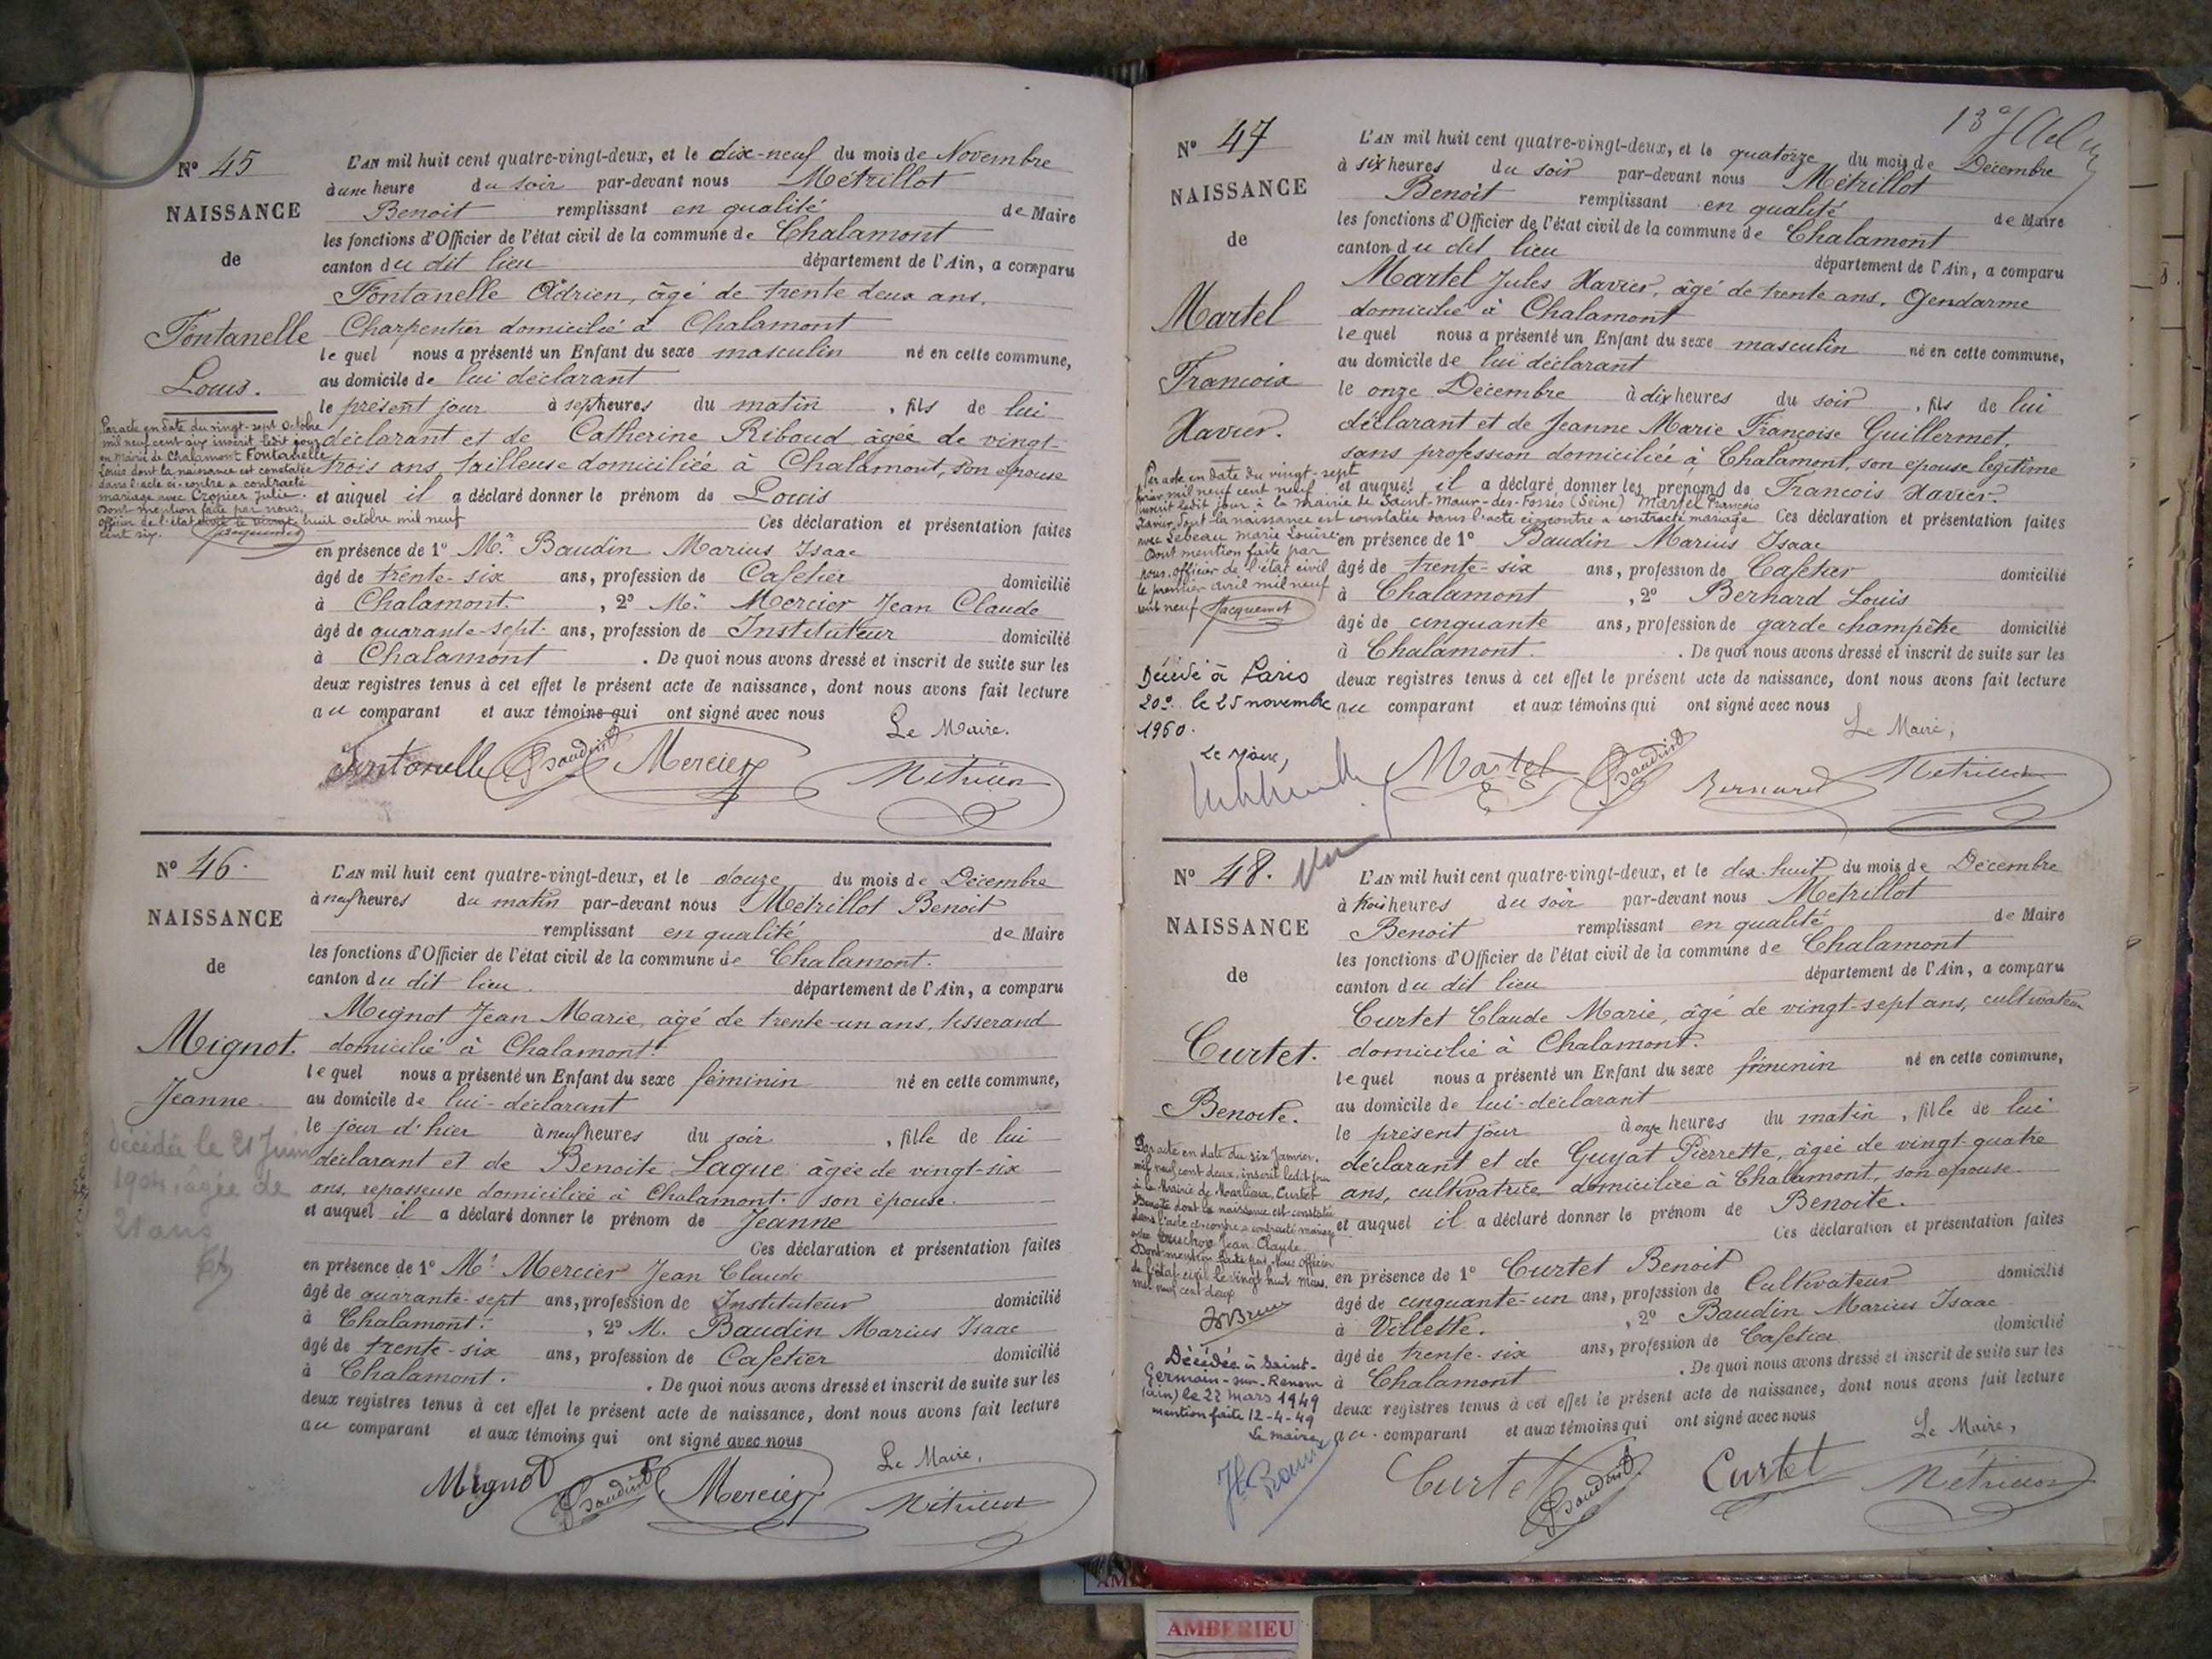 N° 45
NAISSANCE
de
Fontanelle
Louis.
Par acte en date du vingt-sept Octobre
mil neuf cent six inscrit ledit jour
en Mairie de Chalamont Fontanelle
Louis dont la naissance est constatée
dans l'acte ci-contre a contracté
mariage avec Cropier Julie.
Dont mention faite par nous,
officier de l'état civil le vingt huit octobre mil neuf
cent six. Jacquemet
L'AN mil huit cent quatre-vingt-deux, et le dix-neuf du mois de Novembre
à une heure du soir par-devant nous Métrillot
Benoit remplissant en qualité de Maire
les fonctions d'Officier de l'état civil de la commune de Chalamont
canton du dit lieu département de l'Ain, a comparu
Fontanelle Adrien, âgé de trente deux ans,
Charpentier domicilié à Chalamont
lequel nous a présenté un Enfant du sexe masculin né en cette commune,
au domicile de lui déclarant
le présent jour à sept heures du matin, fils de lui
déclarant et de Catherine Riboud âgée de vingt-
trois ans, tailleuse domiciliée à Chalamont, son épouse
et auquel il a déclaré donner le prénom de Louis
Ces déclaration et présentation faites
en présence de 1° Mr. Baudin Marius Isaac
âgé de trente-six ans, profession de Cafetier domicilié
à Chalamont. , 2° Mr. Mercier Jean Claude
âgé de quarante-sept ans, profession de Instituteur domicilié
à Chalamont . De quoi nous avons dressé et inscrit de suite sur les
deux registres tenus à cet effet le présent acte de naissance, dont nous avons fait lecture
au comparant et aux témoins qui ont signé avec nous
Le Maire.
Fontanelle Baudin Mercier Métrillot
N° 46.
NAISSANCE
de
Mignot.
Jeanne
décédée le 21 Juin
1904, âgée de
21 ans
L'AN mil huit cent quatre-vingt-deux, et le douze du mois de Décembre
à neuf heures du matin par-devant nous Métrillot Benoit
remplissant en qualité de Maire
les fonctions d'Officier de l'état civil de la commune de Chalamont.
canton du dit lieu. département de l'Ain, a comparu
Mignot Jean Marie, âgé de trente-un ans, tisserand
domicilié à Chalamont.
lequel nous a présenté un Enfant du sexe féminin né en cette commune,
au domicile de lui-déclarant
le jour d'hier à neuf heures du soir , fille de lui
déclarant et de Benoite Laque âgée de vingt-six
ans, repasseuse domiciliée à Chalamont. son épouse.
et auquel il a déclaré donner le prénom de Jeanne
Ces déclaration et présentation faites
en présence de 1° Mr. Mercier Jean Claude
âgé de quarante-sept ans, profession de Instituteur domicilié
à Chalamont. , 2° M. Baudin Marius Isaac
âgé de trente-six ans, profession de Cafetier domicilié
à Chalamont. . De quoi nous avons dressé et inscrit de suite sur les
deux registres tenus à cet effet le présent acte de naissance, dont nous avons fait lecture
au comparant et aux témoins qui ont signé avec nous
Le Maire,
Mignot Baudin Mercier Métrillot
N° 47
NAISSANCE
de
Martel
Francois
Xavier.
Par acte en date du vingt-sept
mil neuf cent neuf
inscrit ledit jour à la Mairie de Saint-Maur-des-Fossés (Seine) Martel François
Xavier dont la naissance est constatée dans l'acte ci-contre a contracté mariage
avec Lebeau Marie Louise.
Dont mention faite par
nous officier de l'état civil
le premier avril mil neuf
cent neuf Jacquemet
Décédé à Paris
20e le 25 novembre
1960.
Le Maire,
L'AN mil huit cent quatre-vingt-deux, et le quatorze du mois de Décembre
à six heures du soir par-devant nous Métrillot
Benoit remplissant en qualité de Maire
les fonctions d'Officier de l'état civil de la commune de Chalamont
canton du dit lieu département de l'Ain, a comparu
Martel Jules Xavier, âgé de trente ans, Gendarme
domicilié à Chalamont
lequel nous a présenté un Enfant du sexe masculin né en cette commune,
au domicile de lui déclarant
le onze Décembre à dix heures du soir , fils de lui
déclarant et de Jeanne Marie Françoise Guillermet,
sans profession domiciliée à Chalamont, son épouse légitime
et auquel il a déclaré donner les prénoms de Francois Xavier.
Ces déclaration et présentation faites
en présence de 1° Baudin Marius Isaac
âgé de trente-six ans, profession de Cafetier domicilié
à Chalamont , 2° Bernard Louis
âgé de cinquante ans, profession de garde champêtre domicilié
à Chalamont. . De quoi nous avons dressé et inscrit de suite sur les
deux registres tenus à cet effet le présent acte de naissance, dont nous avons fait lecture
au comparant et aux témoins qui ont signé avec nous
Le Maire,
Martel Baudin Bernard Métrillot
N° 48.
NAISSANCE
de
Curtet.
Benoite.
Par acte en date du six Janvier
mil neuf cent deux, inscrit ledit jour
à la Mairie de Marlieux, Curtet
Benoite dont la naissance est constatée
dans l'acte ci-contre a contracté mariage
avec Jean Claude.
Dont mention faite par Nous Officier
de l'état civil le vingt huit Mars
mil neuf cent deux
Décédée à Saint-
Germain-sur-Renom
(Ain) le 22 mars 1949
mention faite 12-4-49
Le maire,
L'AN mil huit cent quatre-vingt-deux, et le dix-huit du mois de Décembre
à trois heures du soir par-devant nous Métrillot
Benoit remplissant en qualité de Maire
les fonctions d'Officier de l'état civil de la commune de Chalamont
canton du dit lieu département de l'Ain, a comparu
Curtet Claude Marie, âgé de vingt-sept ans, cultivateur
domicilié à Chalamont.
lequel nous a présenté un Enfant du sexe féminin né en cette commune,
au domicile de lui-déclarant
le présent jour à onze heures du matin , fille de lui
déclarant et de Guyat Pierrette, âgée de vingt-quatre
ans, cultivatrice domiciliée à Chalamont, son épouse
et auquel il a déclaré donner le prénom de Benoite.
Ces déclaration et présentation faites
en présence de 1° Curtet Benoit
âgé de cinquante-un ans, profession de Cultivateur domicilié
à Villette. , 2° Baudin Marius Isaac
âgé de trente-six ans, profession de Cafetier domicilié
à Chalamont . De quoi nous avons dressé et inscrit de suite sur les
deux registres tenus à cet effet le présent acte de naissance, dont nous avons fait lecture
au comparant et aux témoins qui ont signé avec nous
Le Maire,
Curtet Baudin Curtet Métrillot
AMBERIEU